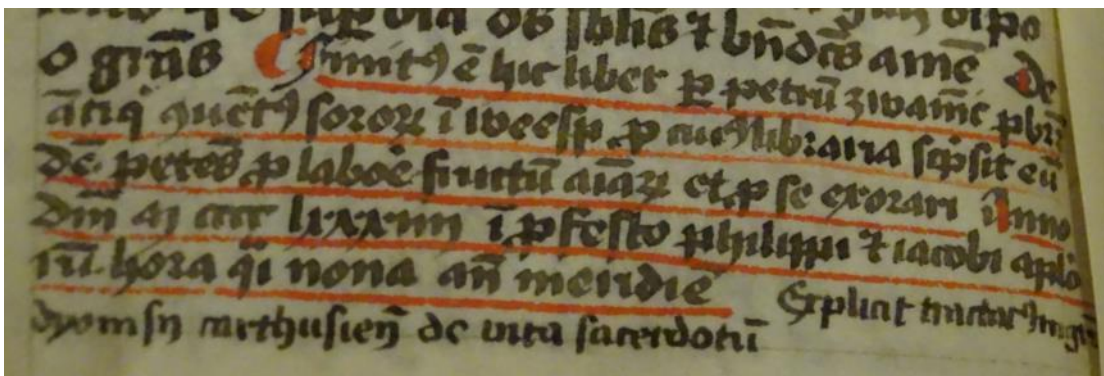 sup oia ds
o gr̄as ¶ Finitꝰ ē hic liber ꝑ petrū zwamē pbrm̄ de
ātiqͥ ꝯuētꝰ sororꝝ ī weesp ꝓ cuiꝰ libraria scͥpsit eū
dē petēs ꝓ laboē fructū aīaꝝ et ꝓ se exorari Anno
dm̄ m cccc lxxxiiii ī ꝓfesto philippi ⁊ iacobi aplo
rū hora qͣi nona an̄ meridie Explicit tractatꝰ mgrī
dyonisij carthusien̄ de vita sacerdotū